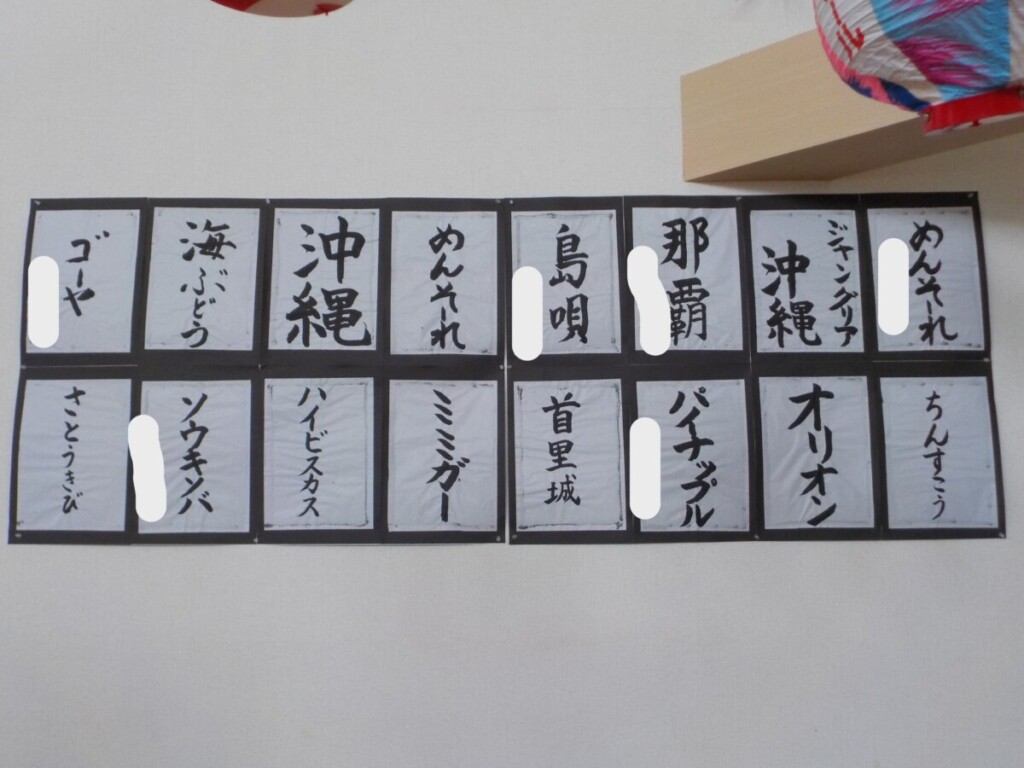 めんそーれ
ジャングリア
沖縄
那覇
島唄
めんそーれ
沖縄
海ぶどう
ゴーヤ
ちんすこう
オリオン
パイナップル
首里城
ミミガー
ハイビスカス
ソウキソバ
さとうきび